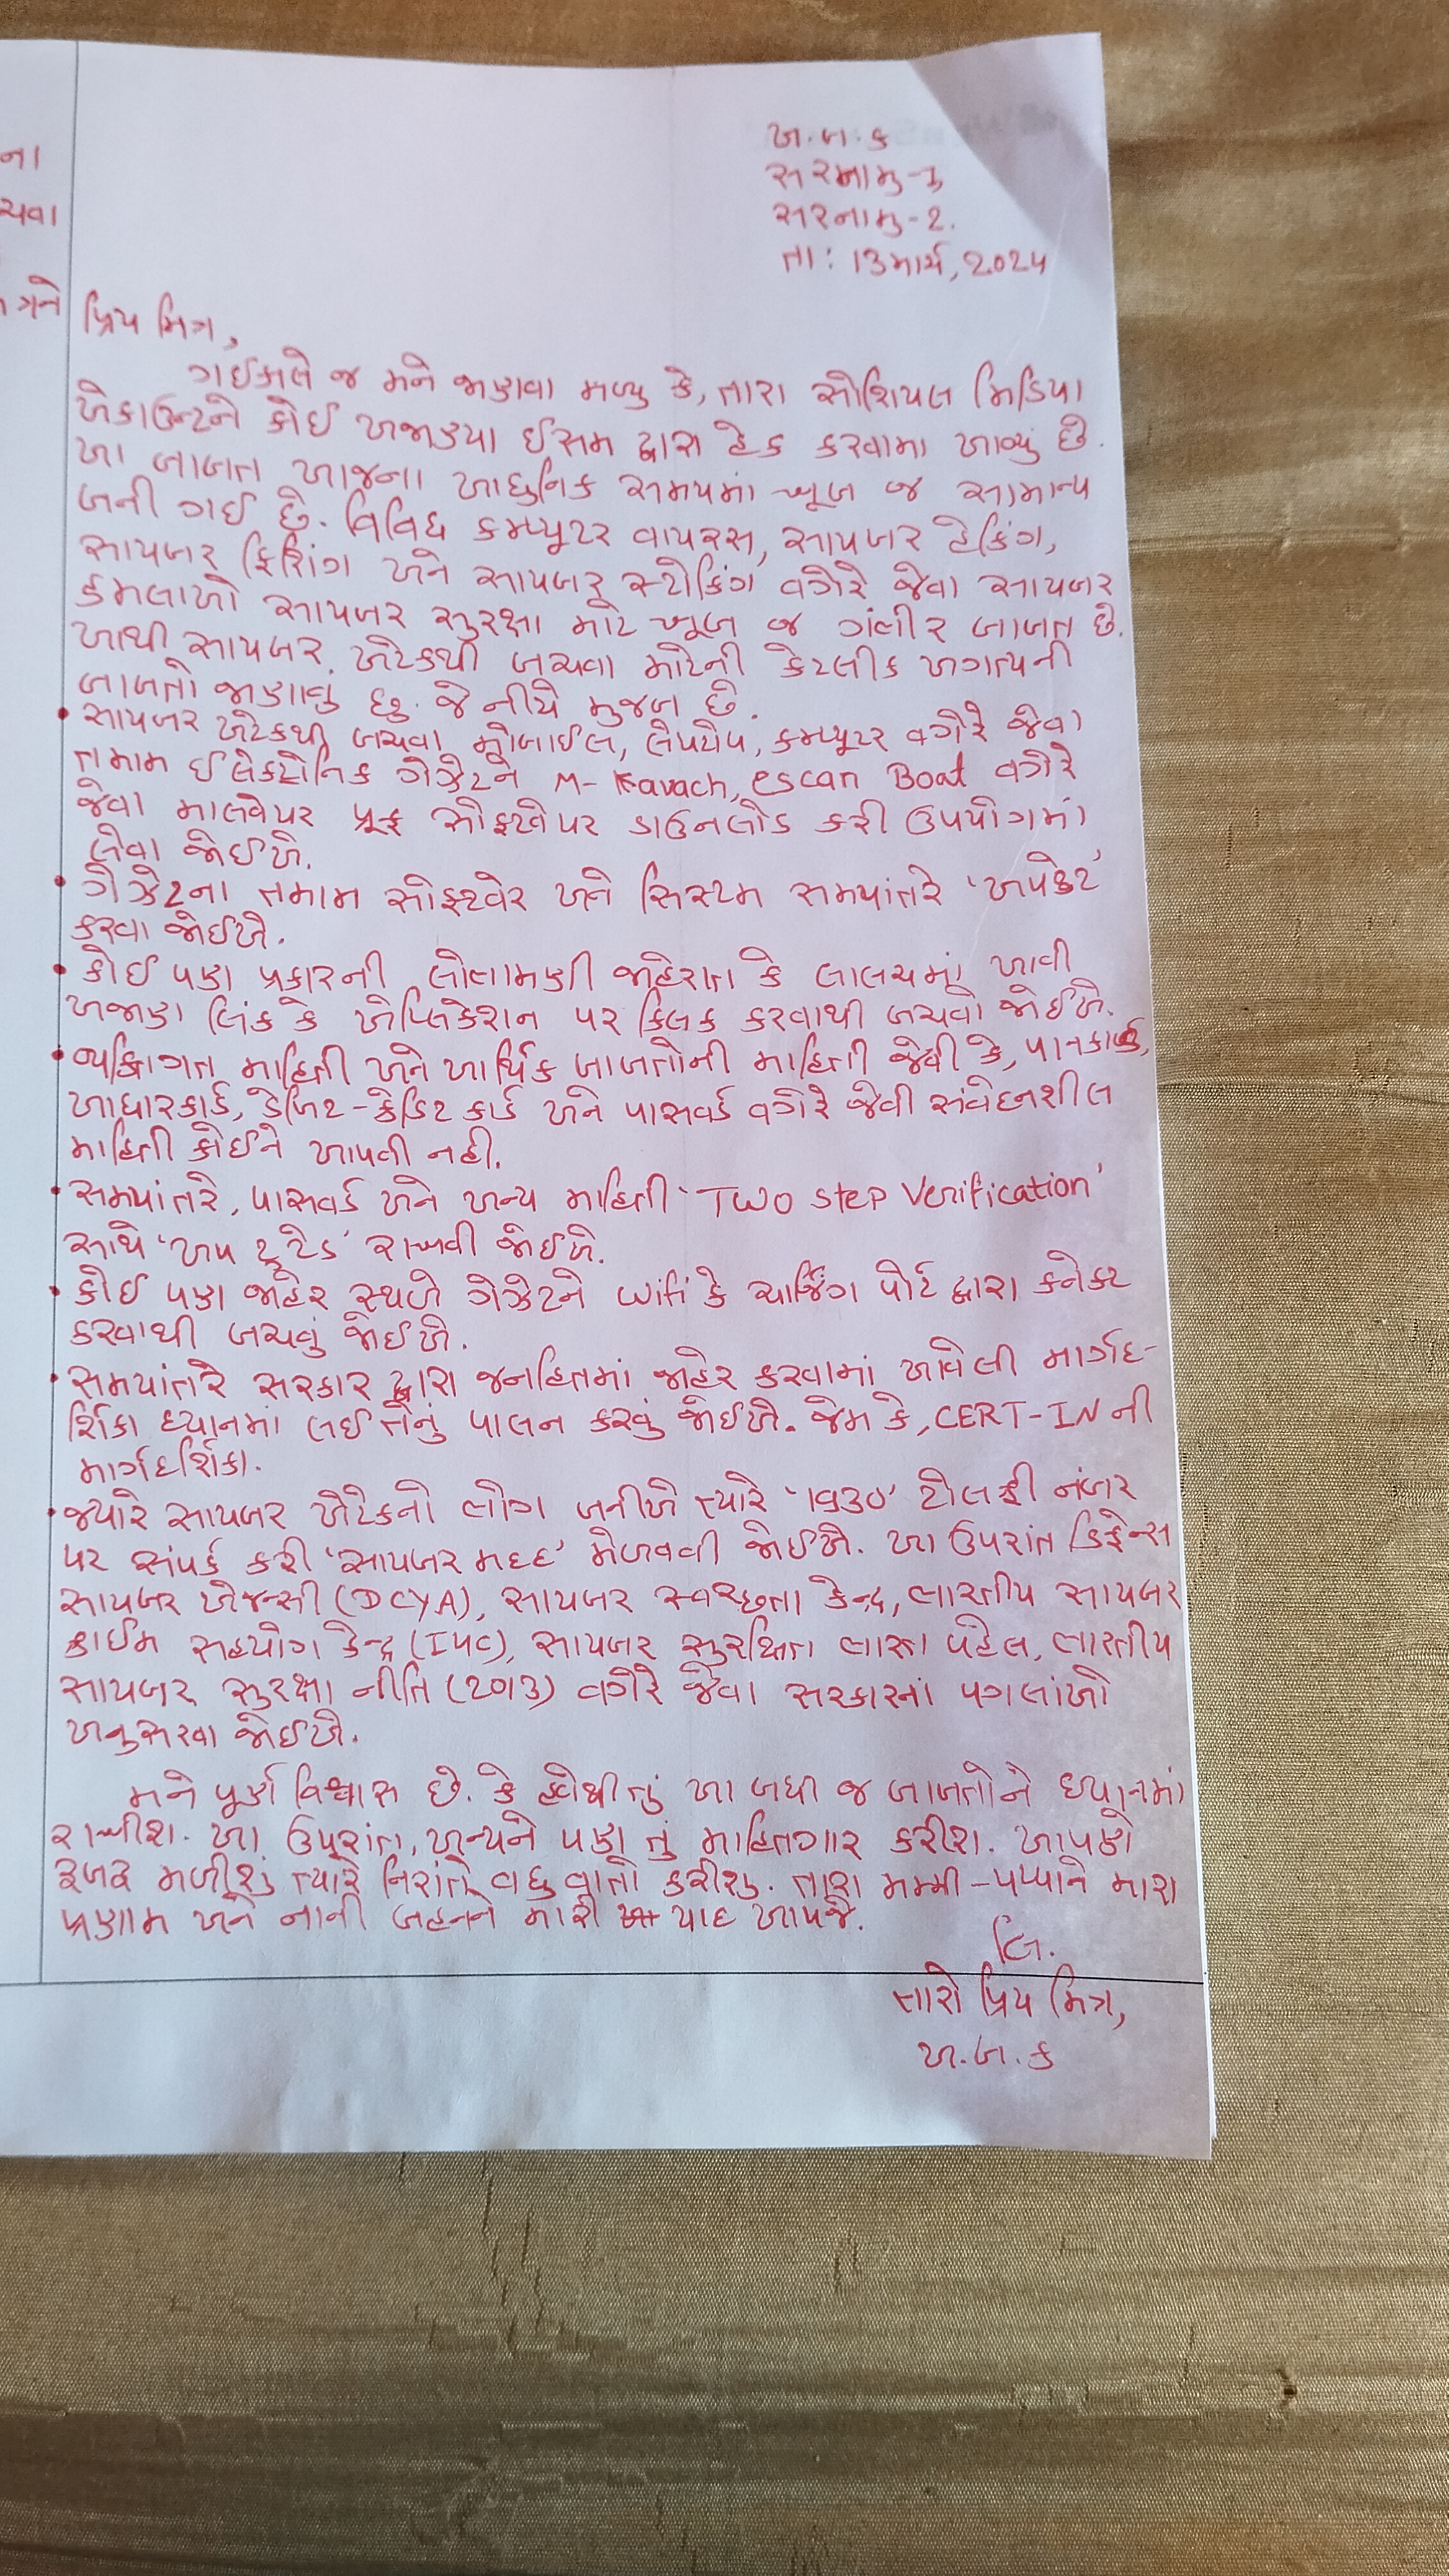 ના
ચવા
અ.બ.ક
સરનામુ-૧
સરનામુ-2.
તા: 13 માર્ચ, 2024
પ્રિય મિત્ર,
ગઈકાલે જ મને જાણવા મળ્યુ કે, તારા સોશિયલ મિડિયા
એકાઉન્ટને કોઈ અજાણ્યા ઈસમ દ્વારા હેક કરવામા આવ્યું છે.
આ બાબત આજના આધુનિક સમયમાં ખૂબ જ સામાન્ય
બની ગઈ છે. વિવિધ કમ્પ્યૂટર વાયરસ, સાયબર હેકિંગ,
સાયબર ફિશિંગ અને સાયબર સ્ટોકિંગ વગેરે જેવા સાયબર
હુમલાઓ સાયબર સુરક્ષા માટે ખૂબ જ ગંભીર બાબત છે.
આથી સાયબર એટેકથી બચવા માટેની કેટલીક અગત્યની
બાબતો જણાવું છું. જે નીચે મુજબ છે.
• સાયબર એટેકથી બચવા મોબાઈલ, લેપટોપ, કમ્પ્યૂટર વગેરે જેવા
તમામ ઈલેક્ટ્રોનિક ગેઝેટને M-Kavach, escan Boat વગેરે
જેવા માલવેયર પ્રૂફ સોફ્ટવેયર ડાઉનલોડ કરી ઉપયોગમાં
લેવા જોઈએ.
• ગેઝેટના તમામ સોફ્ટવેર અને સિસ્ટમ સમયાંતરે 'અપડેટ'
કરવા જોઈએ.
• કોઈ પણ પ્રકારની લોભામણી જાહેરાત કે લાલચમાં આવી
અજાણ લિંક કે એપ્લિકેશન પર ક્લિક કરવાથી બચવો જોઈએ.
• વ્યક્તિગત માહિતી અને આર્થિક બાબતોની માહિતી જેવી કે, પાનકાર્ડ,
આધારકાર્ડ, ડેબિટ-ક્રેડિટ કાર્ડ અને પાસવર્ડ વગેરે જેવી સંવેદનશીલ
માહિતી કોઈને આપવી નહી.
• સમયાંતરે, પાસવર્ડ અને અન્ય માહિતી 'Two step Verification'
સાથે 'અપ ટૂ ડેટ' રાખવી જોઈએ.
• કોઈ પણ જાહેર સ્થળે ગેઝેટને Wifi કે ચાર્જિંગ પોર્ટ દ્વારા કનેક્ટ
કરવાથી બચવું જોઈએ.
• સમયાંતરે સરકાર દ્વારા જનહિતમાં જાહેર કરવામાં આવેલી માર્ગદ-
ર્શિકા ધ્યાનમાં લઈ તેનું પાલન કરવું જોઈએ. જેમ કે, CERT-IN ની
માર્ગદર્શિકા.
• જ્યારે સાયબર એટેકનો ભોગ બનીએ ત્યારે '1930' ટોલ ફ્રી નંબર
પર સંપર્ક કરી 'સાયબર મદદ' મેળવવી જોઈએ. આ ઉપરાંત ડિફેન્સ
સાયબર એજન્સી (DCYA), સાયબર સ્વચ્છતા કેન્દ્ર, ભારતીય સાયબર
ક્રાઈમ સહયોગ કેન્દ્ર (I4C), સાયબર સુરક્ષિત ભારત પહેલ, ભારતીય
સાયબર સુરક્ષા નીતિ (2013) વગેરે જેવા સરકારનાં પગલાંઓ
અનુસરવા જોઈએ.
મને પૂર્ણ વિશ્વાસ છે. કે હવેથી તું આ બધી જ બાબતોને ધ્યાનમાં
રાખીશ. આ ઉપરાંત, અન્યને પણ તું માહિતગાર કરીશ. આપણે
રૂબરૂ મળીશું ત્યારે નિરાંતે વધુ વાતો કરીશુ. તારા મમ્મી-પપ્પાને મારા
પ્રણામ અને નાની બહેનને મારી યાદ આપજે.
લિ.
તારો પ્રિય મિત્ર,
અ.બ.ક